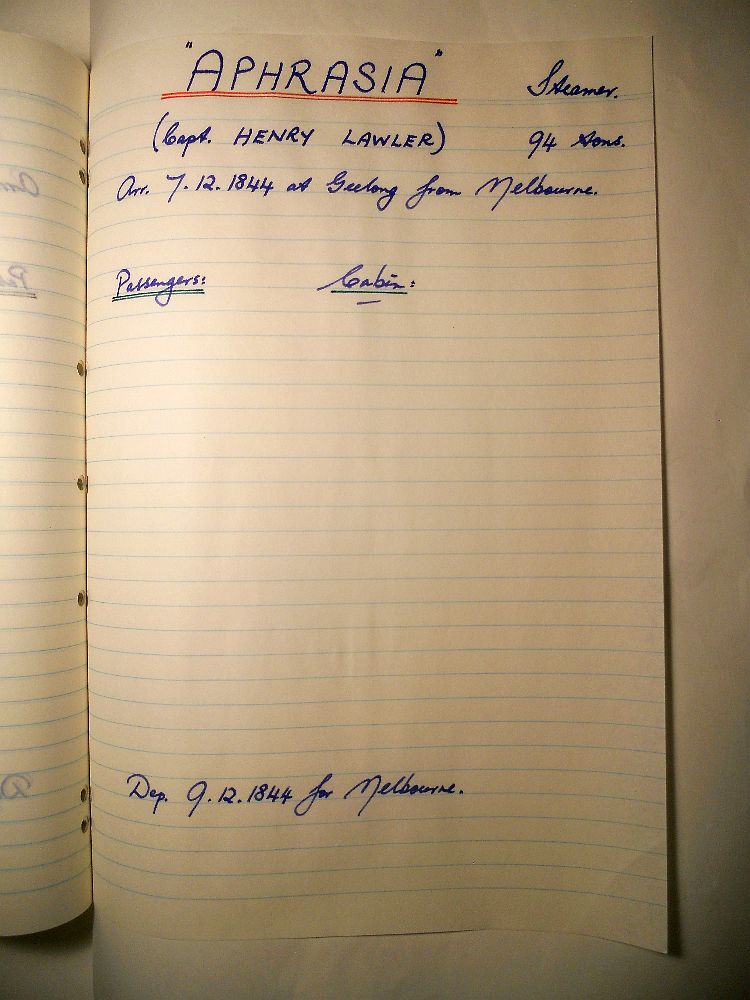 "APHRASIA" Steamer.
(Capt. HENRY LAWLER) 94 tons.
Arr. 7.12.1844 at Geelong from Melbourne.
Passengers: Cabin:
Dep. 9.12.1844 for Melbourne.